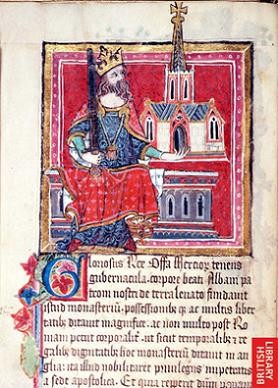 Gloriosus Rex Offa Merciorum tenens
gubernacula, corpore beati Albani pa
tron nostri de terra levato fundavit
istud monasterium possessionibus et ac multis liber
tatibus ditavit magnifice. ac non multo post Ro
mam petiit corporalit. ut sicut temporalibus et re
galibus dignitatibus hoc monasterium ditavit in an
glia: ita illud nobilitaret privilegiis impetratis
a sede apostolica. Et quia repetiit
BRITISH
LIBRARY